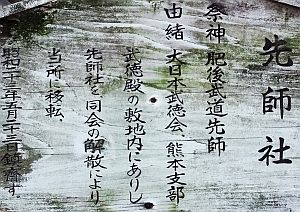 先師社
祭神 肥後武道先師
由緒 大日本武徳会、熊本支部
武徳殿の敷地内にありし
先師社を同会の解散により
当所に移転、
昭和二十一年五月二十三日鎮斎す。